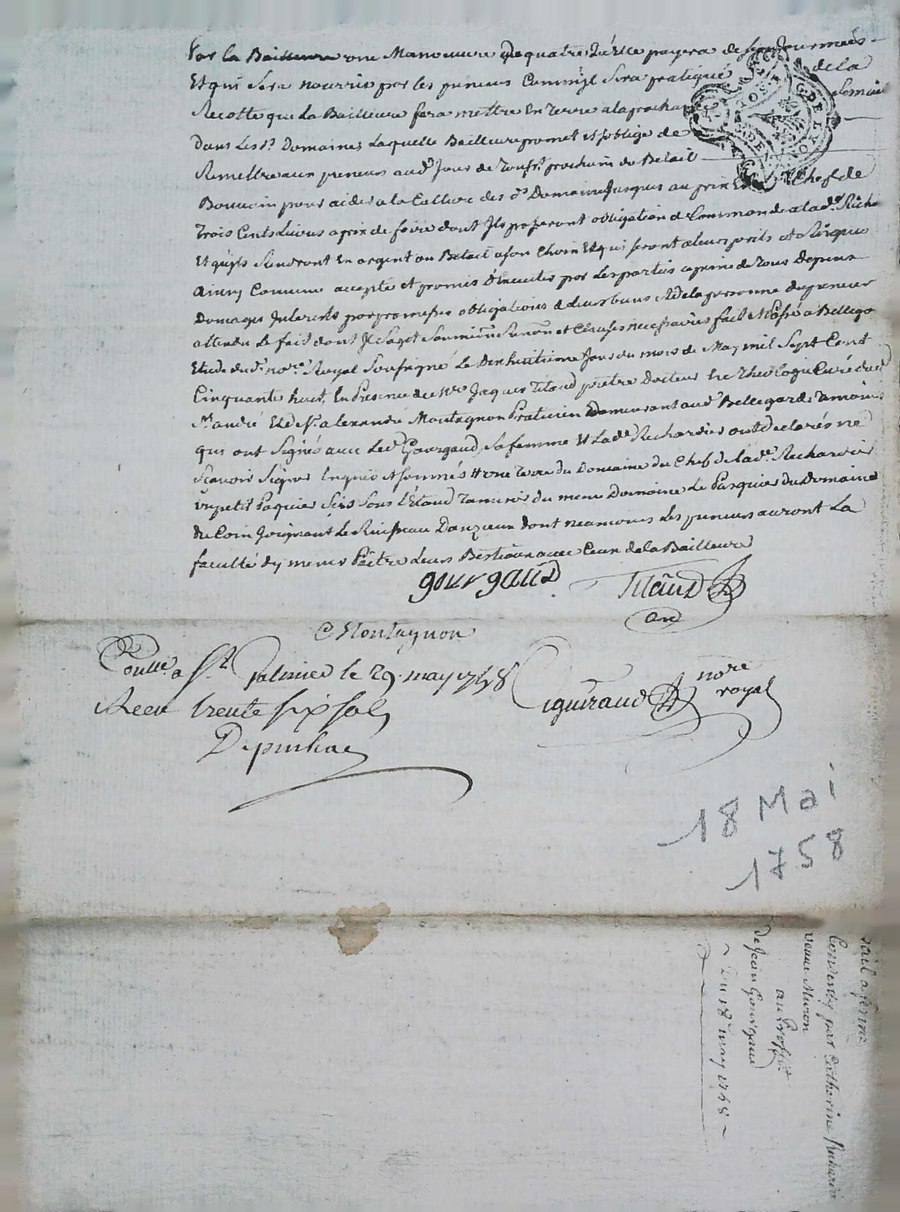 Par la Bailleure une Manoeuvre de quatre qu'Elle payera de ses Journées
Et qui Sera nourrie par les preneurs Comm'yl Sera pratiqué de la
Recolte que la Bailleure fera mettre En Terre a la prochaine Semaille
Dans Les ds. Domaines Laquelle Bailleure promet et s'oblige de
Remettre aux preneurs aud. Jour de Touss. prochain du Betail
Bouvain pour aider a la Culture des ds. Domaine Jusques au prix Chef de
Trois Cents Livres a prix de foire dont Ils passeront obligation de Commande a lad. Richa
Et qu'yls Rendront En argent ou Betail a son Choix Et qui seront a leurs perils et Risques
Ainsy Convenu accepté et promis d'Executer par Les parties a peine de Tous Depens
Domages Interests par promesses obligations de leurs biens et de la personne du preneur
attendu le fait dont Il s'agit Soumissions Renon. et Clauses necessaires fait et passé a Bellega
Etude du d. nore. Royal Soussigné Le Dix huitieme Jour du mois de May mil Sept Cent
Cinquante huit, En Presence de Mre. Jacques Titaud prêtre Docteur En Theologie Curé de
St. André Et de Sr. alexandre Montagnon Praticien Demeurant aud. Bellegarde Temoins
qui ont Signés avec Led. Gourgaud, sa femme Et Lade. Richardier ont declarés ne
Scavoir Signer Enquis et sommés # une Terre du Domaine du Chef de lade. Richardier
un petit Paquier Sis Sous l'Etang du meme Domaine Le Pasquier du Domaine
du Coin Joignant Le Ruisseau D'anzieux dont neamoins Les preneurs auront La
faculté d'y mener Paître Leurs Bestiaux avec Ceux de la Bailleure
gourgaud Titaud
Montagnon
Conllé. a St. Galmier le 29. may 1758
Receu trente six sols
Ciguiraud nore royal
18 Mai
1758
Bail a ferme
Consenty par Catherine Richardier
veuve Muron
au Proffit
de Jean Gourgaud
Du 18 may 1758